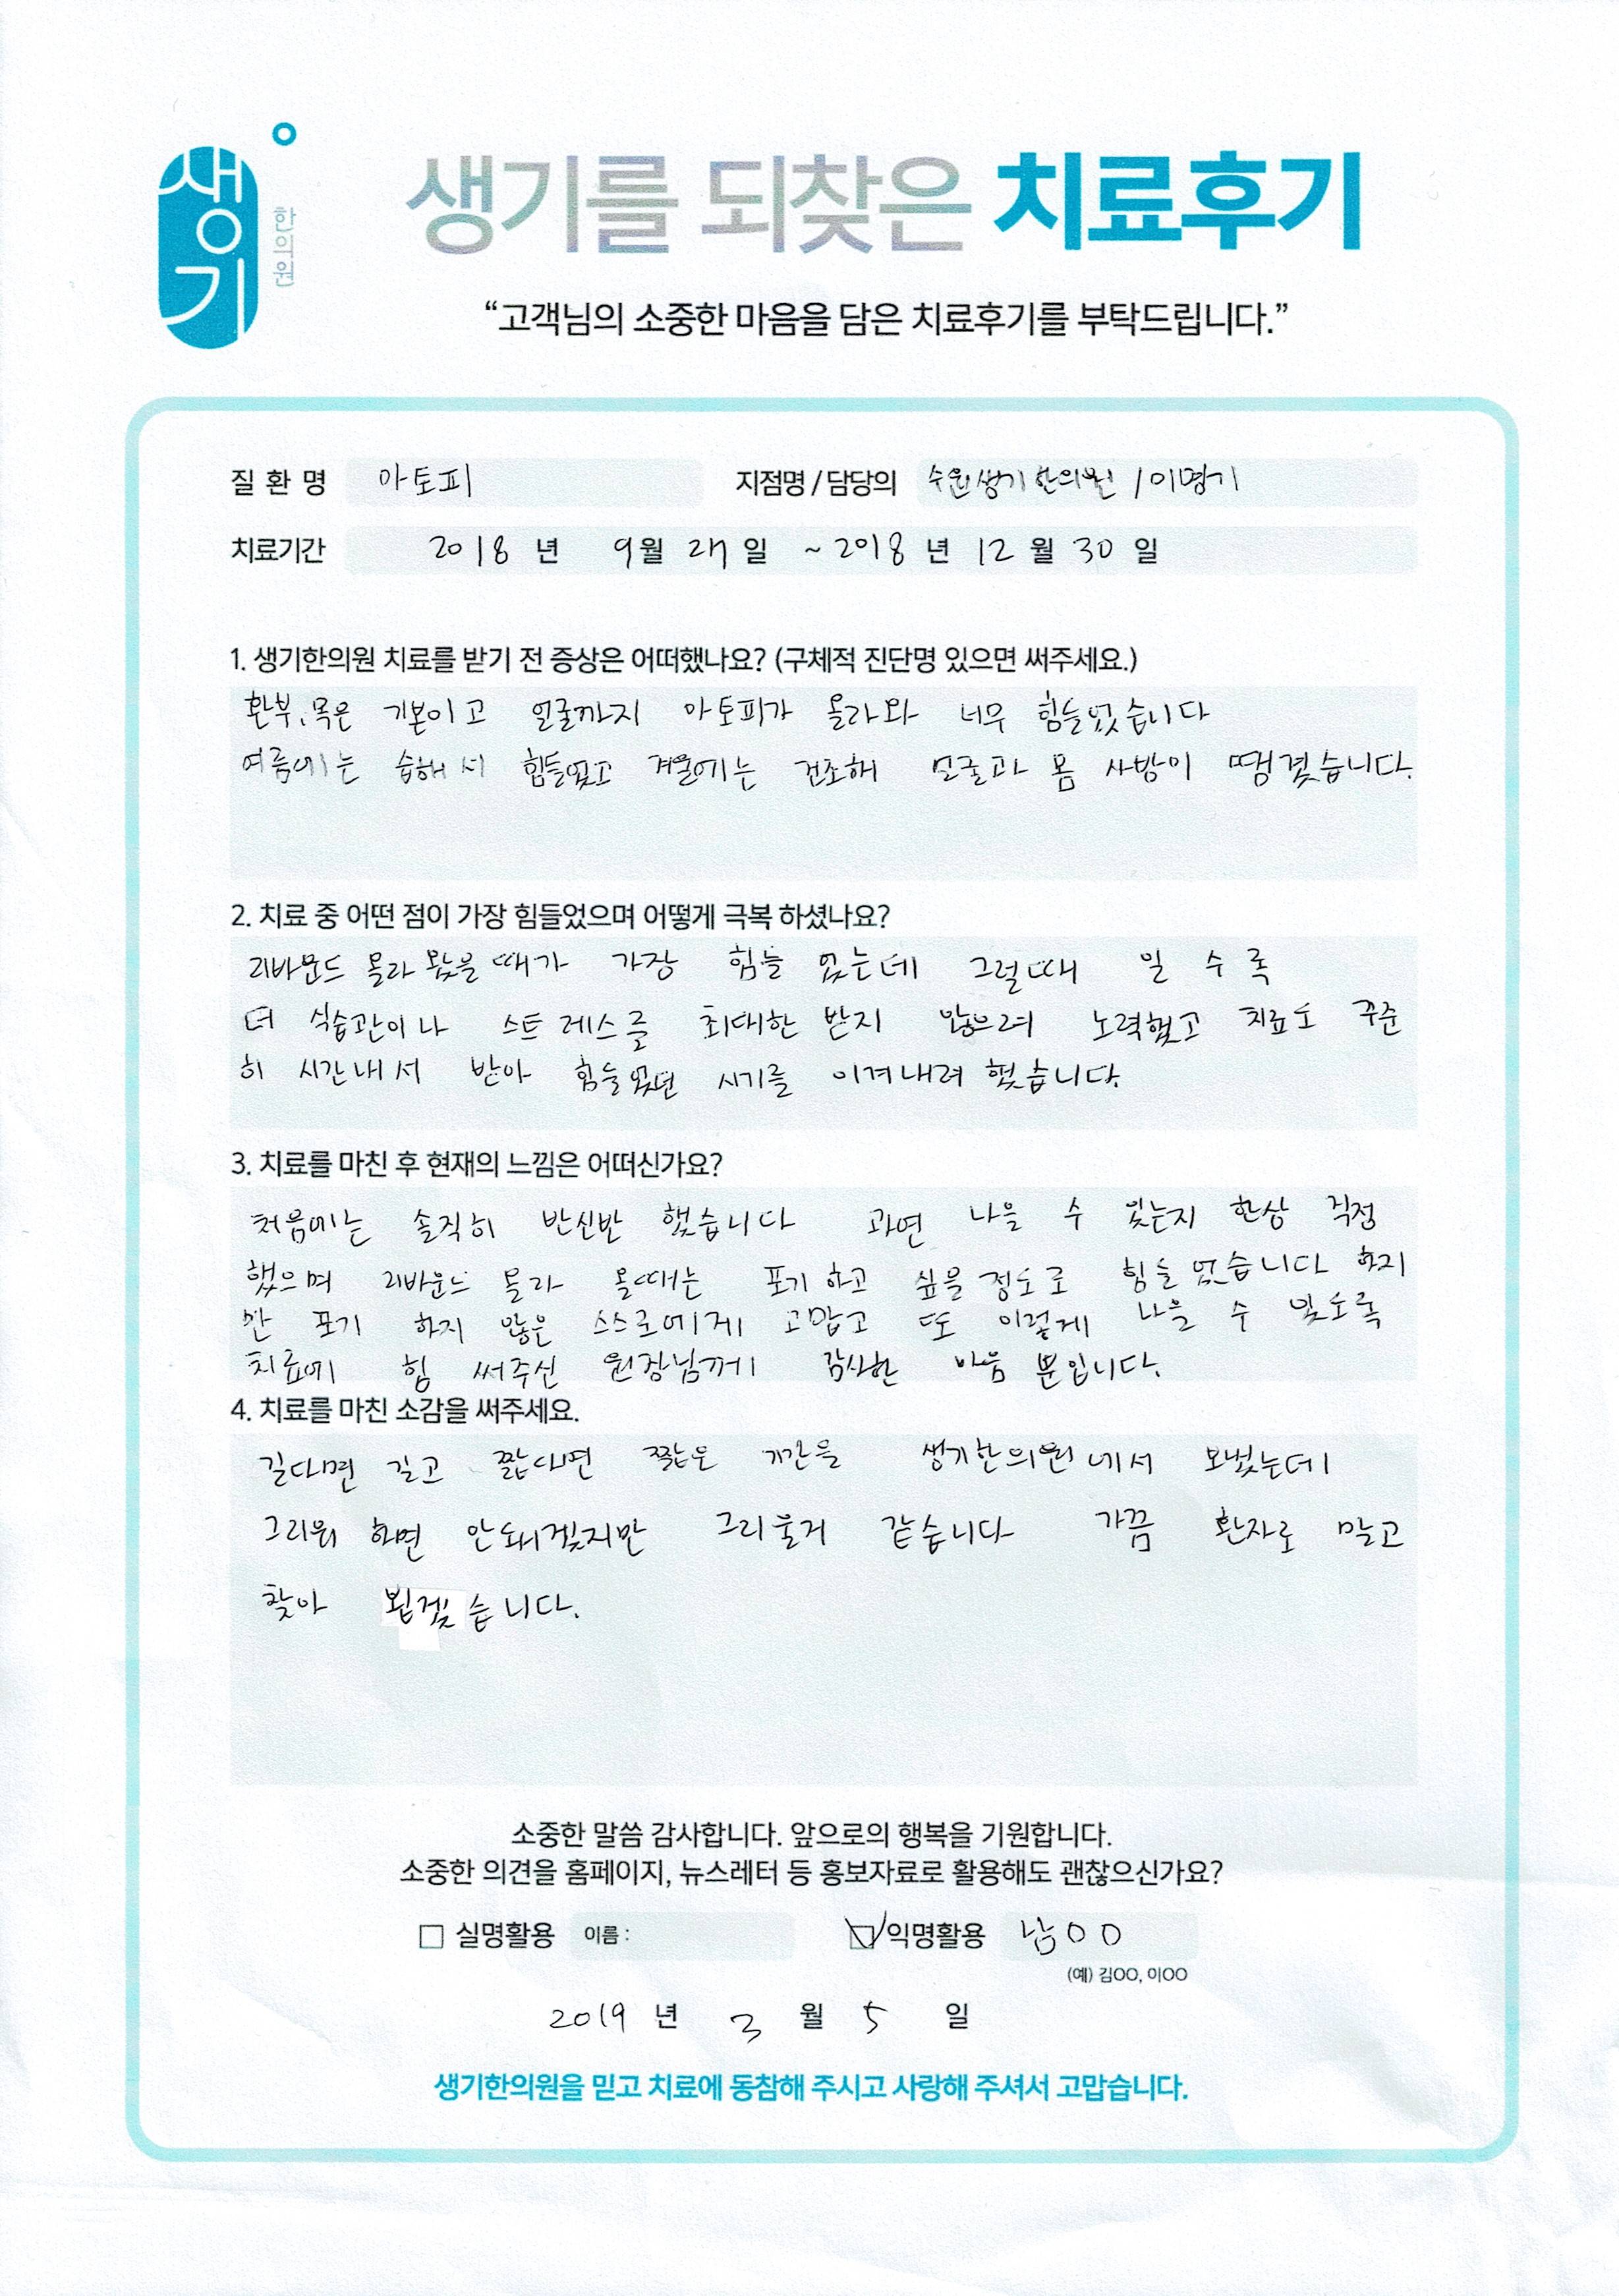 생기 한의원
생기를 되찾은 치료후기
“고객님의 소중한 마음을 담은 치료후기를 부탁드립니다.”
질 환 명 아토피 지점명 / 담당의 수원생기한의원 / 이명기
치료기간 2018 년 9월 27 일 ~ 2018 년 12 월 30 일
1. 생기한의원 치료를 받기 전 증상은 어떠했나요? (구체적 진단명 있으면 써주세요.)
환부, 목은 기본이고 얼굴까지 아토피가 올라와 너무 힘들었습니다
여름에는 습해서 힘들었고 겨울에는 건조해 얼굴과 몸 사방이 땡겼습니다.
2. 치료 중 어떤 점이 가장 힘들었으며 어떻게 극복 하셨나요?
리바운드 올라 왔을 때가 가장 힘들 었는데 그럴때 일 수 록
더 식습관이나 스트레스를 최대한 받지 않으려 노력했고 치료도 꾸준
히 시간내서 받아 힘들었던 시기를 이겨내려 했습니다.
3. 치료를 마친 후 현재의 느낌은 어떠신가요?
처음에는 솔직히 반신반 했습니다 과연 나을 수 있는지 항상 걱정
했으며 리바운드 올라 올때는 포기 하고 싶을 정도로 힘들었습니다 하지
만 포기 하지 않은 스스로에게 고맙고 또 이렇게 나을 수 있도록
치료에 힘 써주신 원장님께 감사한 마음 뿐입니다.
4. 치료를 마친 소감을 써주세요.
길다면 길고 짧다면 짧은 기간을 생기한의원에서 보냈는데
그리워 하면 안돼겠지만 그리울거 같습니다 가끔 환자로 말고
찾아 뵙겠습니다.
소중한 말씀 감사합니다. 앞으로의 행복을 기원합니다.
소중한 의견을 홈페이지, 뉴스레터 등 홍보자료로 활용해도 괜찮으신가요?
□ 실명활용 이름 : ☑ 익명활용 남OO
(예) 김OO, 이OO
2019 년 3 월 5 일
생기한의원을 믿고 치료에 동참해 주시고 사랑해 주셔서 고맙습니다.